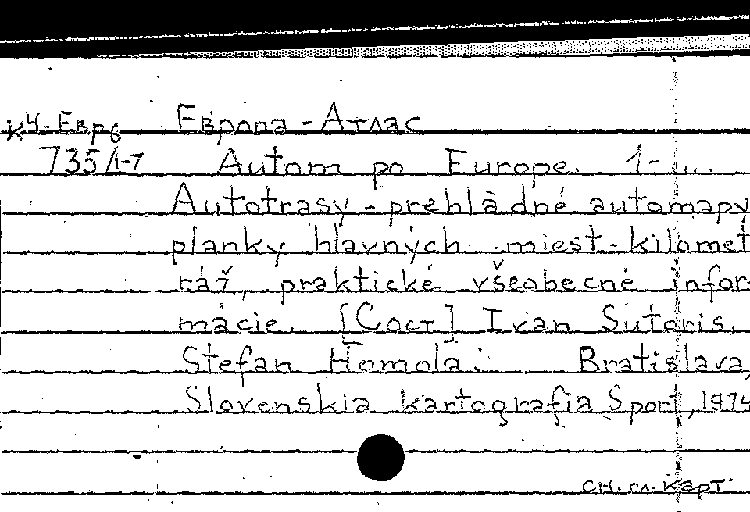 К4-Евр6 Европа - Атлас
735/1-7 Autom po Europe. 1-...
Autotrasy - prehládné automapy
planky hlavných miest - kilomet
ráž, praktické všeobecné infor
mácie. [Сост] Ivan Šutoris,
Stefan Homola. Bratislava,
Slovenskia kartografia Šport, 1974
см. гл. карт.